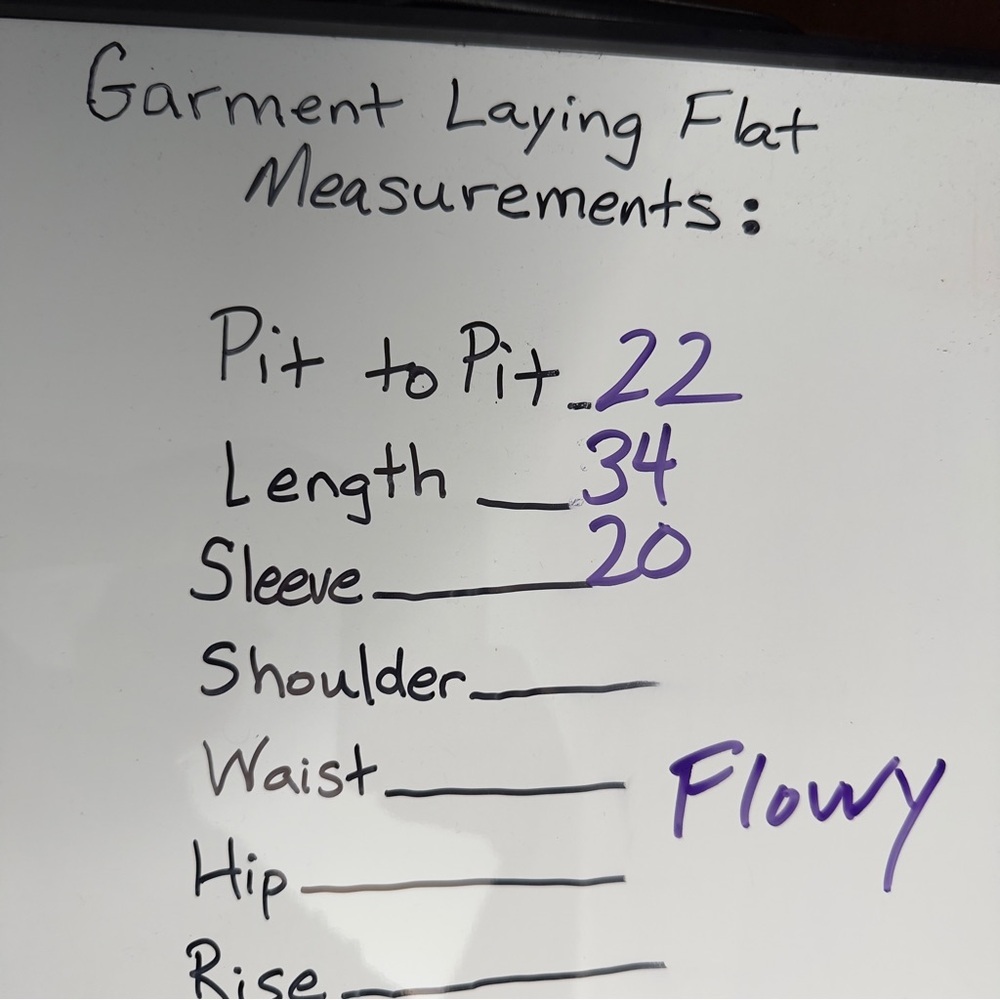 Garment Laying Flat
Measurements:
Pit to Pit 22
Length 34
Sleeve 20
Shoulder
Waist
Flowy
Hip
Rise